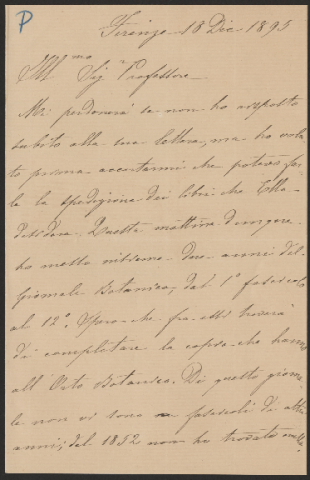 P
Firenze 18 Dic. 1895
Ill.mo Sig.r Professore
Mi perdonerà se non ho risposto
subito alla sua lettera, ma ho volu
to prima accertarmi che potevo far
le la spedizione dei libri che Ella
desidera. Questa mattina dunque
ho messo insieme due anni del
Giornale Botanico, dal 1° fascicolo
al 12°. Spero che fra essi troverà
da completare la copia che hanno
all'Orto Botanico. Di questo giorna
le non vi sono fascicoli di altri
anni; del 1852 non ho trovato nulla